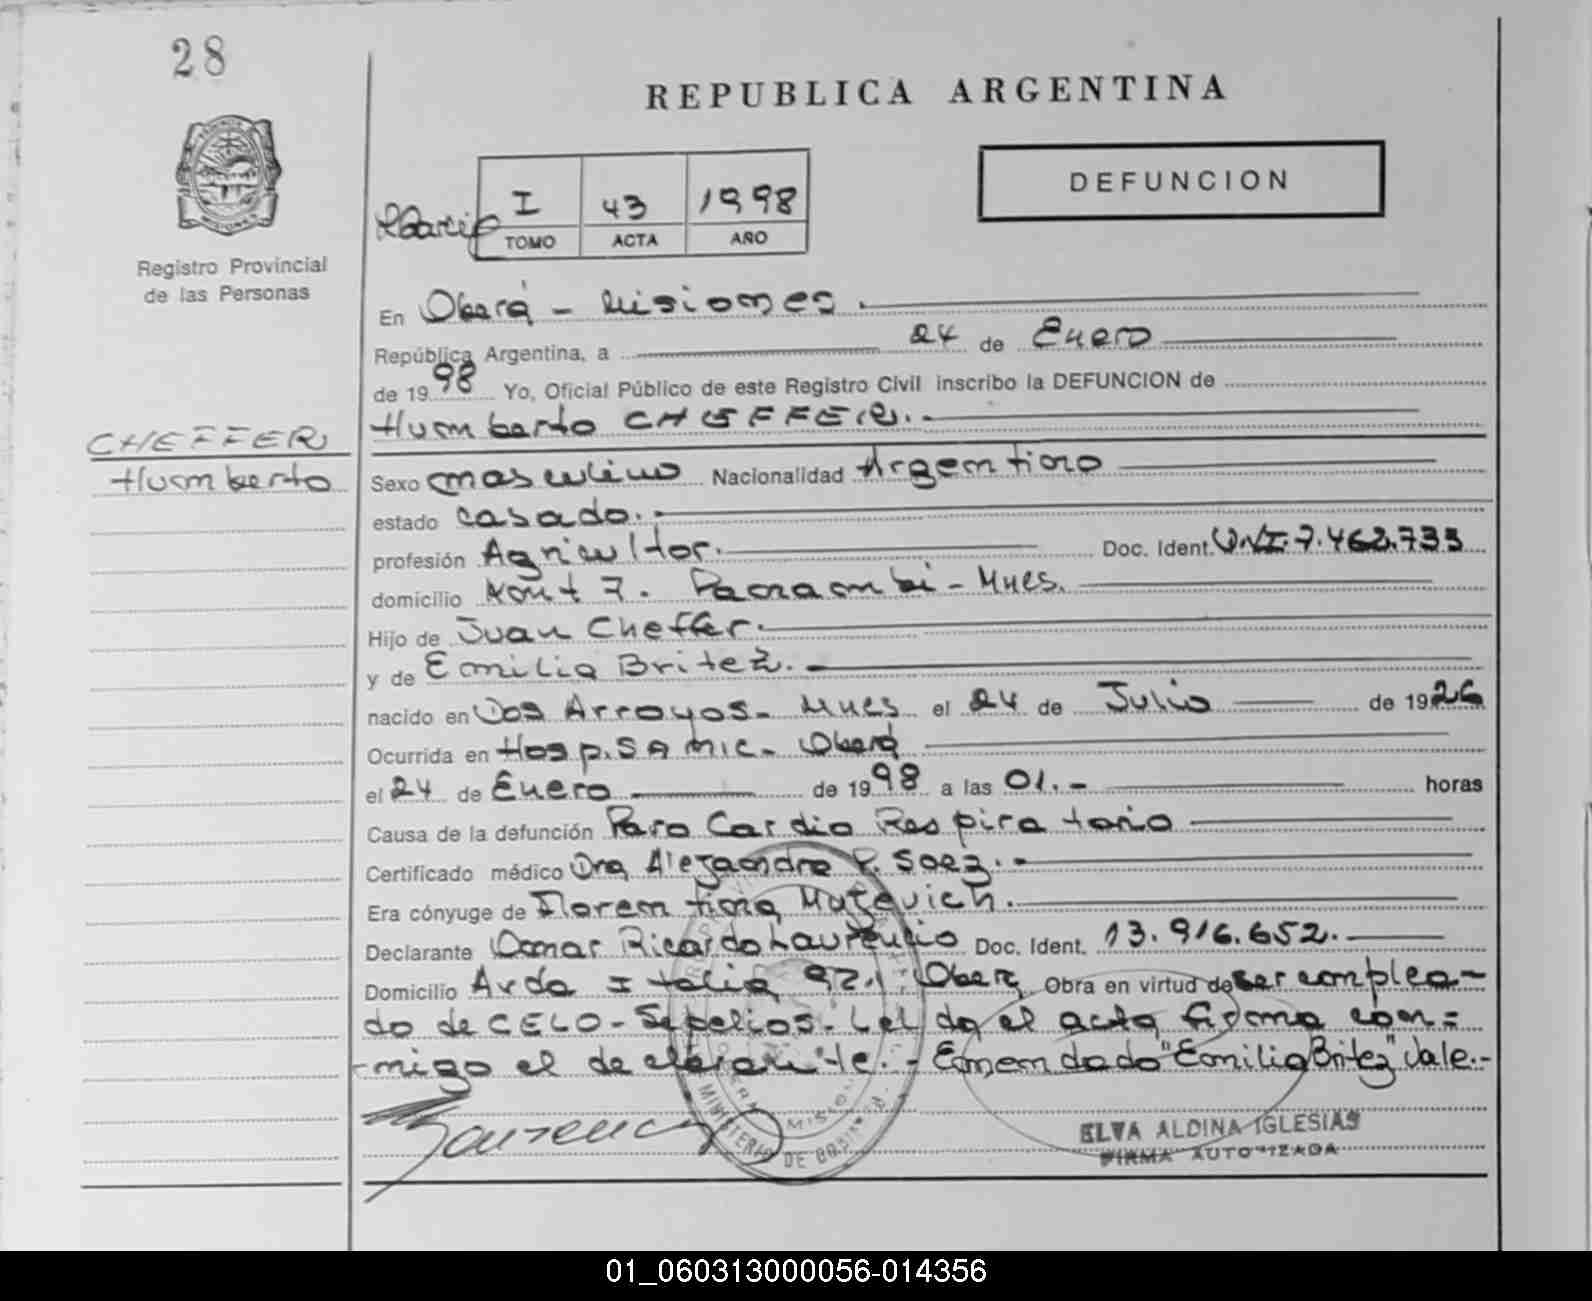 28
REPUBLICA ARGENTINA
DEFUNCION
I 43 1998
TOMO ACTA AÑO
Registro Provincial
de las Personas
En Oberá - Misiones.
República Argentina, a 24 de Enero
de 1998 Yo, Oficial Público de este Registro Civil inscribo la DEFUNCION de
Humberto CHEFFER.-
CHEFFER
Humberto
Sexo masculino Nacionalidad Argentino
estado casado.-
profesión Agricultor. Doc. Ident. D.N.I. 7.462.733
domicilio Km t 7. Panambi - Mnes.
Hijo de Juan Cheffer.
y de Emilia Britez.-
nacido en Dos Arroyos - Mnes el 24 de Julio de 1926
Ocurrida en Hosp. SAMIC - Oberá
el 24 de Enero de 1998 a las 01.- horas
Causa de la defunción Paro Cardio Respiratorio
Certificado médico Dra Alejandra P. Saez.-
Era cónyuge de Florentina
Declarante Omar Ricardo Laurencio Doc. Ident. 13.916.652.
Domicilio Avda Italia 92. Oberá Obra en virtud de ser emplea-
do de CELO - Sepelios. Leida el acta firma con=
-migo el declarante.- Enmendado "Emilia Britez" Vale.-
MINISTERIO DE GOBIERNO
ELVA ALDINA IGLESIAS
FIRMA AUTORIZADA
01_060313000056-014356